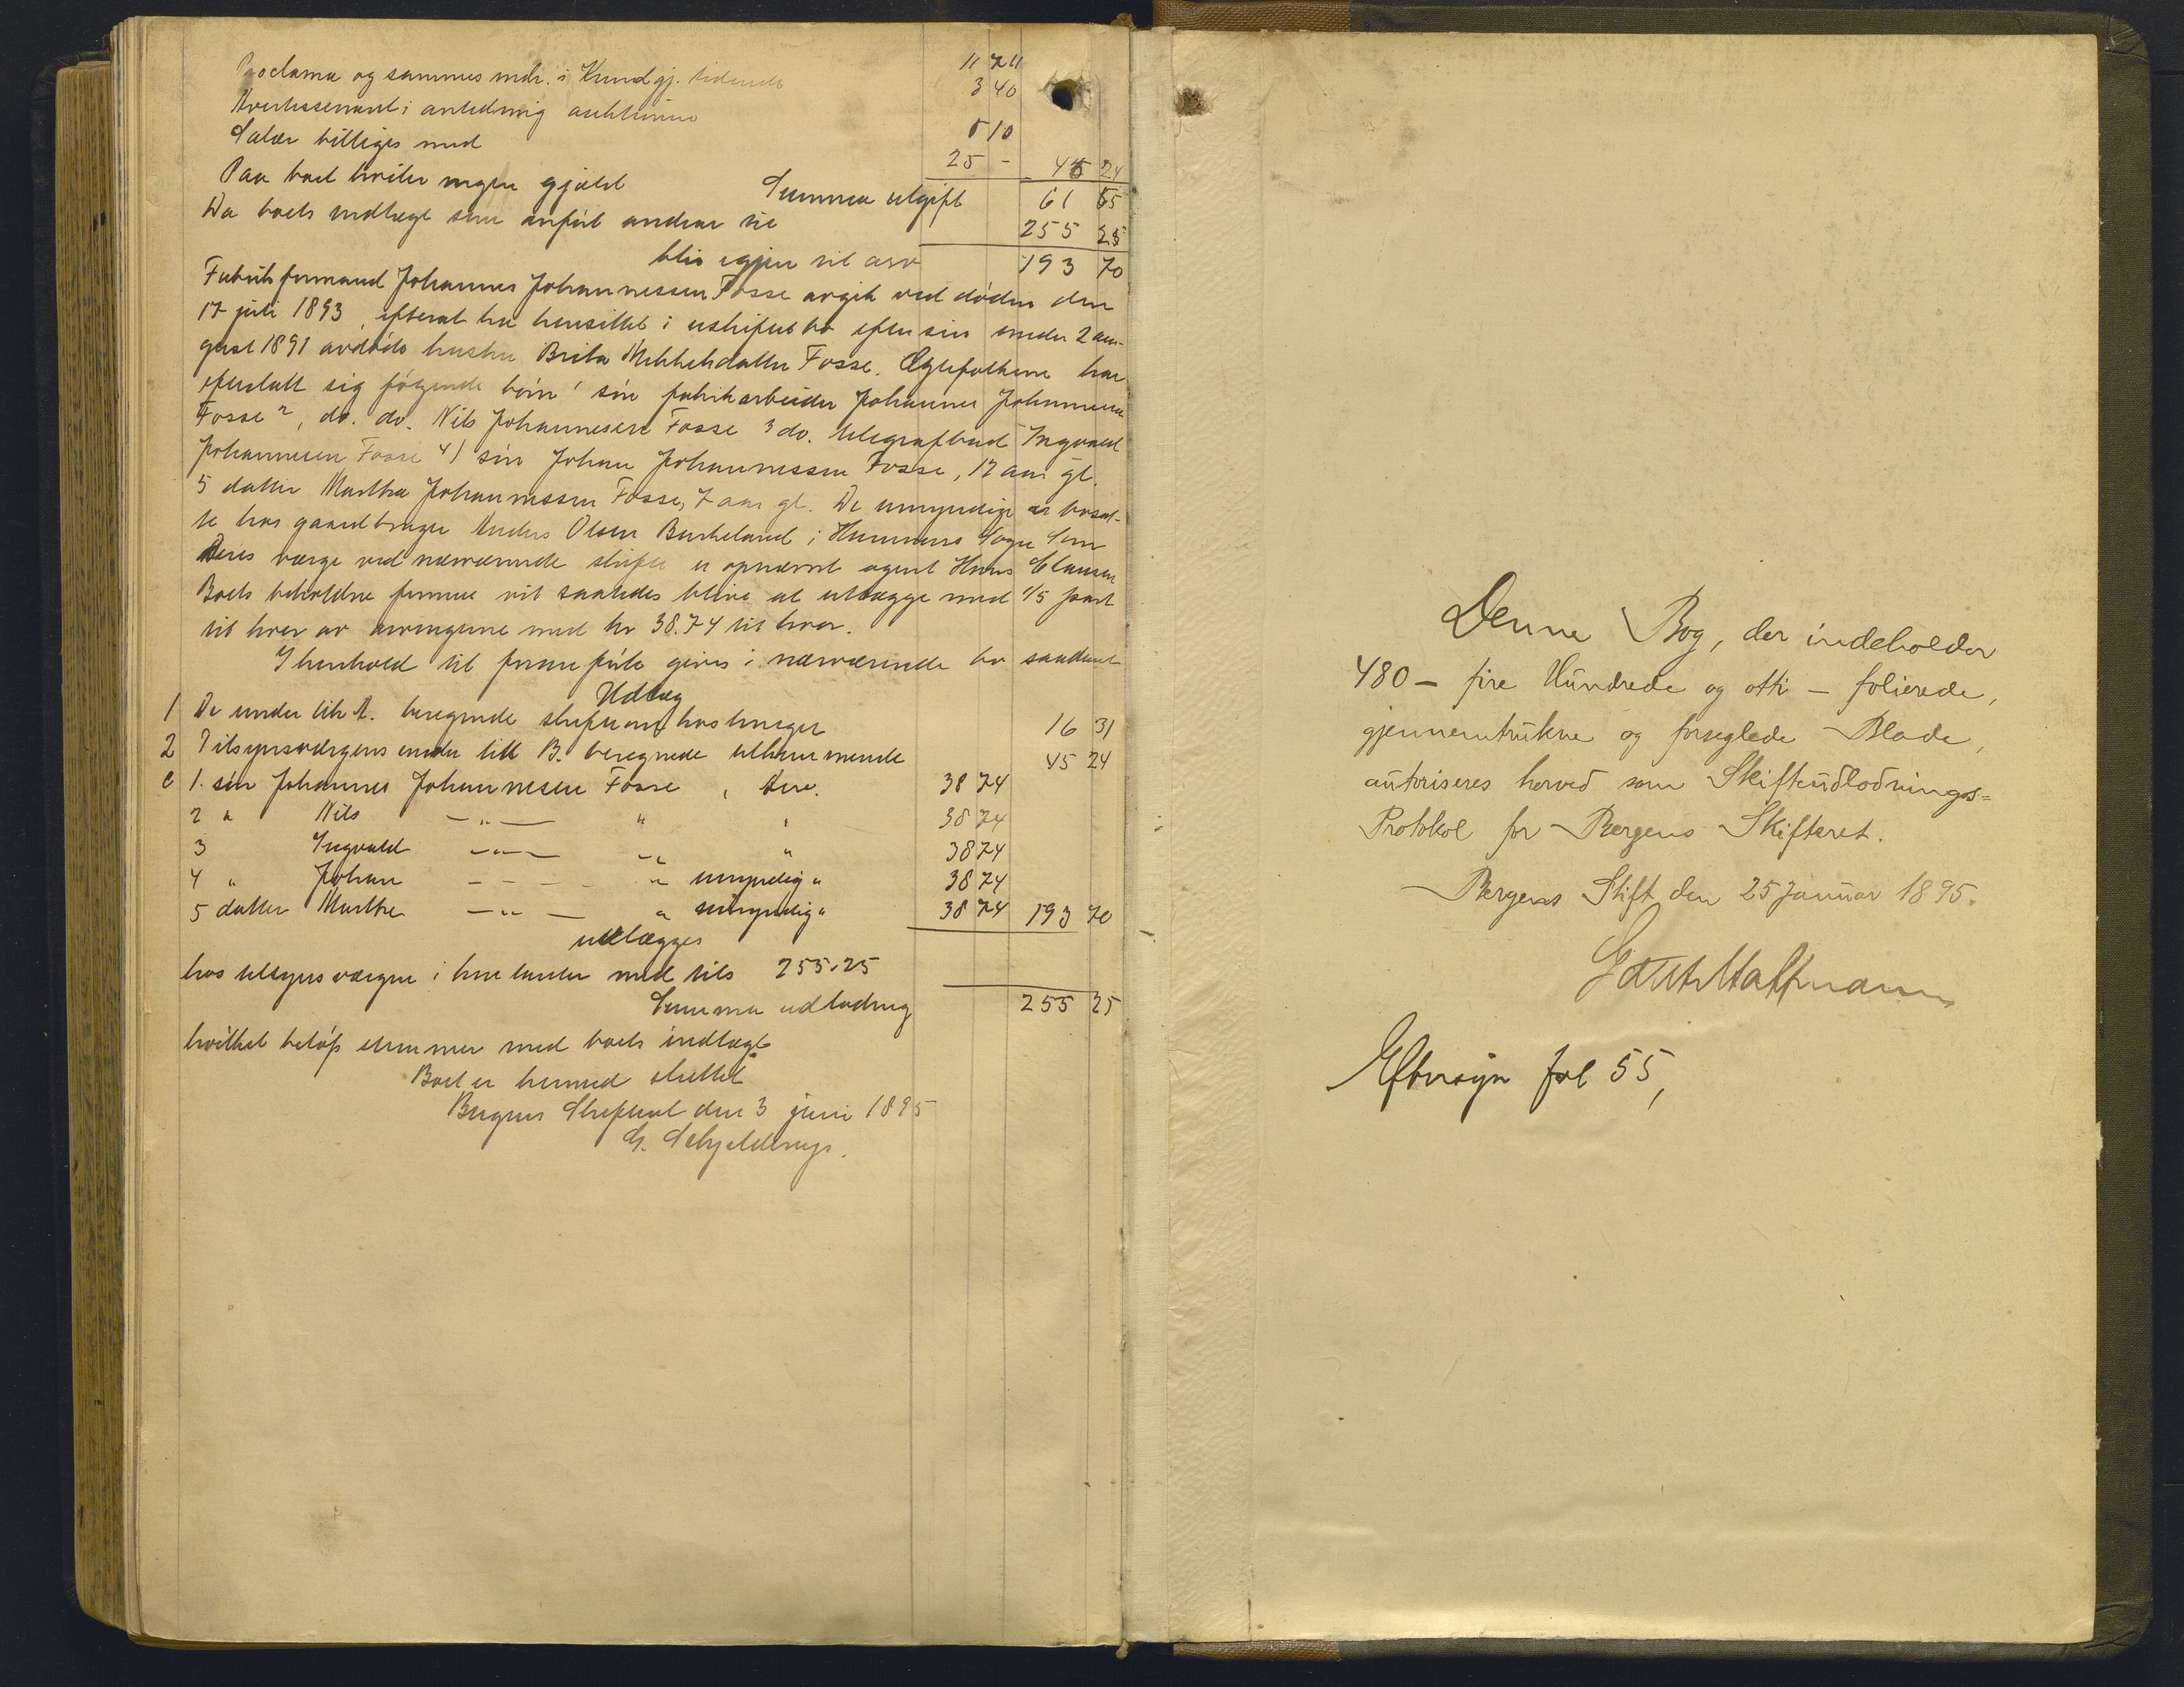 Proclama og sammes indr. i Kundgj. tidende 11 74
Avertissement i anledning auktionen 3 40
Salær billiges med 5 10
25 - 45 24
Paa boet hviler ingen gjæld Summa utgift 61 55
Da boets indtægt som anført andrar til 255 25
blir igjen til arv 193 70
Fabrikformand Johannes Johannessen Fosse avgik ved døden den
17 juli 1893, efterat ha hensittet i uskiftet bo efter sin under 2 au-
gust 1891 avdøde hustru Brita Mikkelsdatter Fosse. Egtefolkene har
efterlatt sig følgende børn 1 søn fabrikarbeider Johannes Johannessen
Fosse 2, do. do. Nils Johannesen Fosse 3 do. telegrafbud Ingvald
Johannesen Fosse 4) søn Johan Johannessen Fosse, 12 aar gl.
5 datter Martha Johannessen Fosse, 7 aar gl. De umyndige er bosat-
te hos gaardbruger Anders Olsen Birkeland i Hammers Sogn Som
Deres værge ved nærværende skifte er opnævnt agent Hans Clausen
Boets beholdne formue vil saaledes blive at utlægge med 1/5 part
til hver av arvingerne med kr 38.74 til hver.
I henhold til foranførte gives i nærværende bo saadant
Udlæg
1 De under litr A. beregnede skifteomkostninger 16 31
2 Tilsynsværgens under litr B. beregnede utkommende 45 24
C 1. søn Johannes Johannesen Fosse, Arv. 38 74
2 " Nils —"— " " 38 74
3 Ingvald —"— " " 38 74
4 " Johan — — " umyndig " 38 74
5 datter Marthe —"— " umyndig " 38 74 193 70
udlægges
hos tilsynsværgen i kontanter med tils 255.25
Summa udlodning 255 25
hvilket beløp stemmer med boets indtægt
Boet er hermed sluttet
Bergens Skifteret den 3 juni 1895
G. Schjelderup.
Denne Bog, der indeholder
480 - fire Hundrede og otti - folierede,
gjennemtrukne og forseglede Blade,
autoriseres herved som Skifteudlodnings=
Protokol for Bergens Skifteret.
Bergens Stift den 25 Januar 1895.
Eftersyn fol 55,